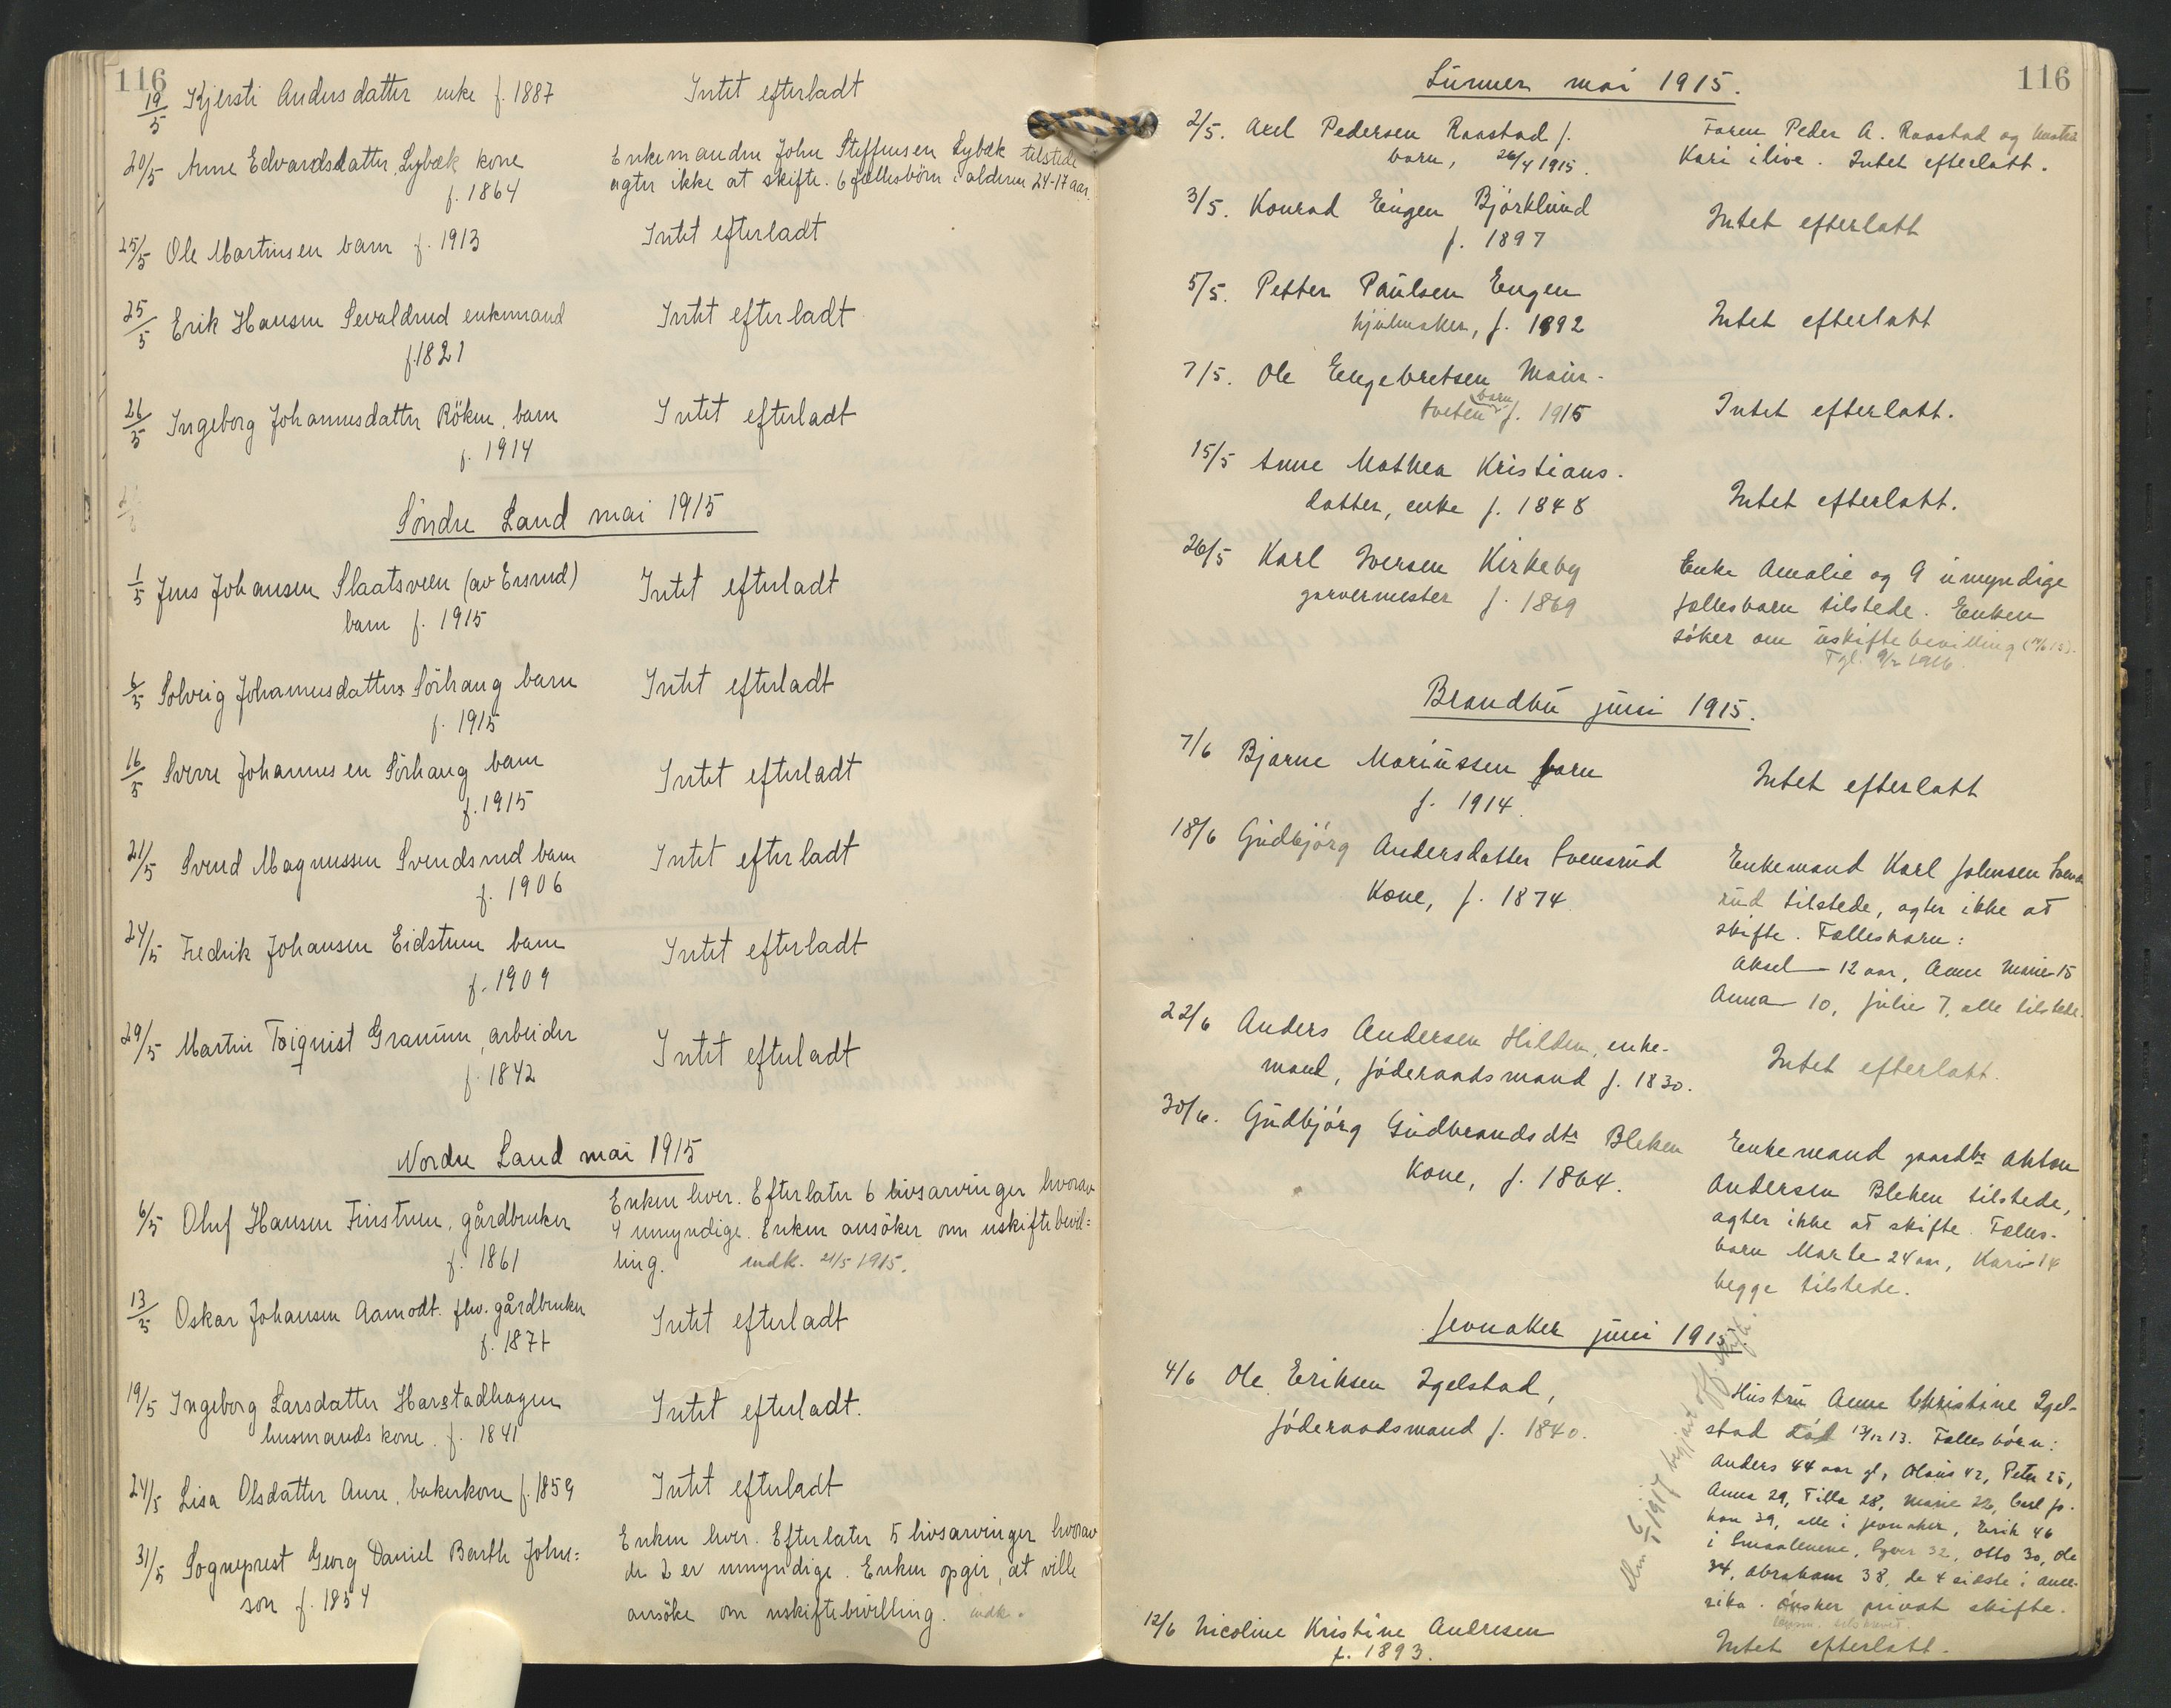 116
19/5 Kjersti Andersdatter enke f. 1887 Intet efterladt
20/5 Anne Edvardsdatter Lybæk kone Enkemanden John Steffensen Lybæk tilstede
f. 1864 agter ikke at skifte. 6 fællesbörn i alderen 24-17 aar.
25/5 Ole Martinsen barn f. 1913 Intet efterladt
25/5 Erik Hansen Sevaldrud enkemand Intet efterladt
f. 1821
26/5 Ingeborg Johannesdatter Röken, barn Intet efterladt
f. 1914
Söndre Land mai 1915
1/5 Jens Johansen Slaatsveen (av Ensrud) Intet efterladt
barn f. 1915
6/5 Solveig Johannesdatter Sörhaug barn Intet efterladt
f. 1915
16/5 Sverre Johannesen Sörhaug barn Intet efterladt
f. 1915
21/5 Svend Magnussen Svendsrud barn Intet efterladt
f. 1906
24/5 Fredrik Johansen Eidstuen barn Intet efterladt
f. 1909
29/5 Martin Toiqvist Granum, arbeider Intet efterladt
f. 1842
Nordre Land mai 1915
6/5 Oluf Hansen Finstuen, gårdbruker Enken lever. Efterlater 6 livsarvinger hvorav
f. 1861 4 umyndige. Enken ansöker om uskiftebevil=
ling. medk. 21/5 1915.
13/5 Oskar Johansen Aamodt. fhv. gårdbruker Intet efterladt
f. 1871
19/5 Ingeborg Larsdatter Harstadhagen Intet efterladt.
husmands kone. f. 1841
24/5 Lisa Olsdatter Aure, bakerkone f. 1859 Intet efterladt
31/5 Sogneprest Georg Daniel Barth John= Enken lever. Efterlater 5 livsarvinger hvorav
son f. 1854 de 2 er umyndige. Enken opgir, at ville
ansöke om uskiftebevilling. medk.
116
Lunner mai 1915.
2/5. Axel Pedersen Raastad f. Faren Peder A. Raastad og hustru
barn, 26/4 1915. Kari ilive. Intet efterlatt.
3/5. Konrad Eugen Björklund Intet efterlatt
f. 1897
5/5. Petter Paulsen Engen
hjulmaker, f. 1892 Intet efterlatt
7/5. Ole Engebretsen Moin-
tveten barn f. 1915 Intet efterlatt.
15/5 Anne Mathea Kristians-
datter, enke f. 1848 Intet efterlatt.
26/5 Karl Iversen Kirkeby Enke Amalie og 9 umyndige
garvermester f. 1869 fællesbarn tilstede. Enken
söker om uskiftebevilling
Tgl. 9/2 1916.
Brandbu juni 1915.
7/6 Bjarne Mariussen barn Intet efterlatt
f. 1914
18/6 Gudbjörg Andersdatter Svensrud Enkemand Karl Johnsen Svens
Kone, f. 1874 rud tilstede, agter ikke at
skifte. Fællesbarn:
Aksel - 12 aar, Anne Marie 15
Anna - 10, Julie 7, alle tilstede.
22/6 Anders Andersen Hilden, enke- Intet efterlatt.
mand, föderaadsmand f. 1830.
30/6. Gudbjörg Gudbrandsdtr Bleken Enkemand gaardbr Anton
Kone, f. 1864. Andersen Bleken tilstede,
agter ikke at skifte. Fælles-
barn Marte 24 aar, Kari 14
begge tilstede.
Jevnaker juni 1915.
4/6 Ole Eriksen Igelstad, Hustru Anne Christine Igel-
föderaadsmand f. 1840. stad död 13/12 13. Fællesbörn:
Anders 44 aar gl, Olaus 42, Peter 25,
Anna 29, Tilla 28, Marie 22, Carl Jo-
han 39, alle i Jevnaker, Erik 46
i Smaalenene, Syver 32, Otto 30, Ole
34, Abraham 38, de 4 sidste i Ame-
rika. Önsker privat skifte.
1917 begjært off skifte.
12/6 Nicoline Kristine Andresen Intet efterlatt.
f. 1893.